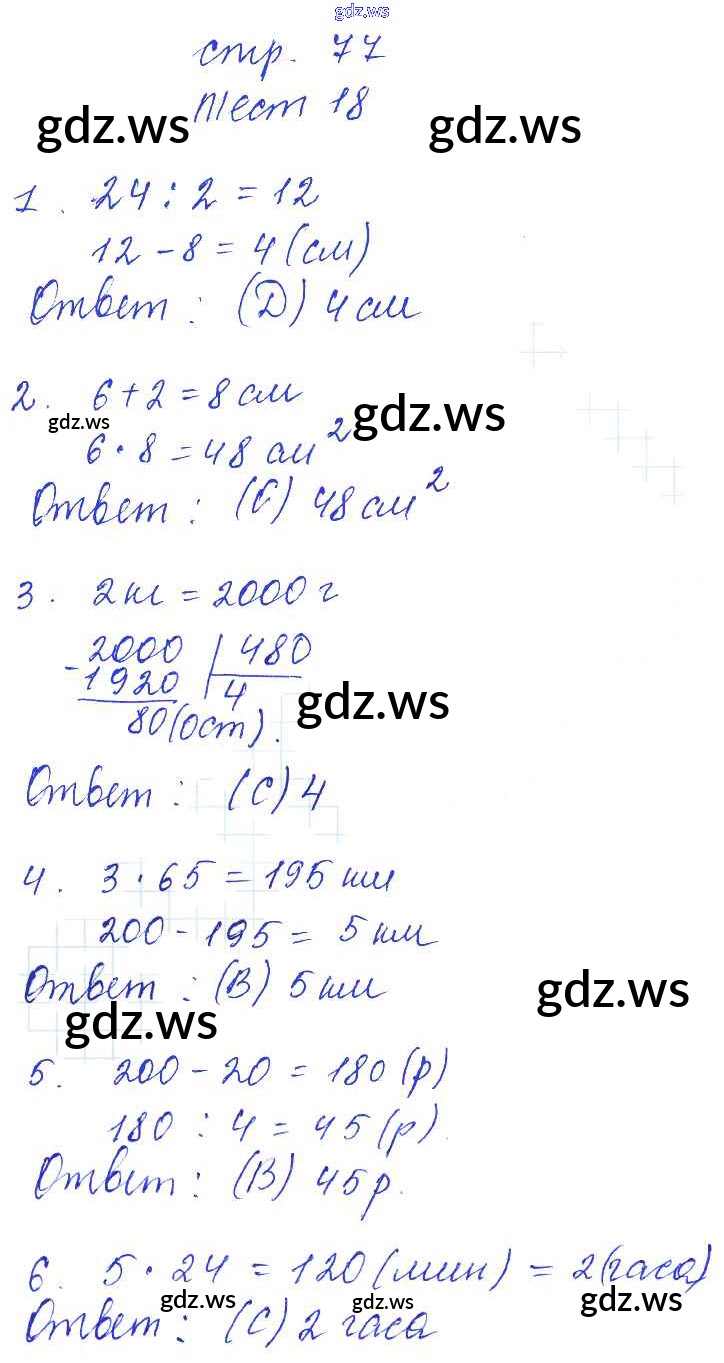 gdz.ws
стр. 77
Тест 18
gdz.ws gdz.ws
1. 24 : 2 = 12
12 - 8 = 4 (см)
Ответ : (D) 4 см
2. 6 + 2 = 8 см
gdz.ws gdz.ws
6 · 8 = 48 см²
Ответ : (C) 48 см²
3. 2 кг = 2000 г
-2000 | 480
1920 | 4
80 (ост).
gdz.ws
Ответ : (C) 4
4. 3 · 65 = 195 км
200 - 195 = 5 км
Ответ : (B) 5 км
gdz.ws gdz.ws
5. 200 - 20 = 180 (р)
180 : 4 = 45 (р).
Ответ : (B) 45 р.
6. 5 · 24 = 120 (мин) = 2 (часа)
gdz.ws gdz.ws gdz.ws
Ответ : (C) 2 часа